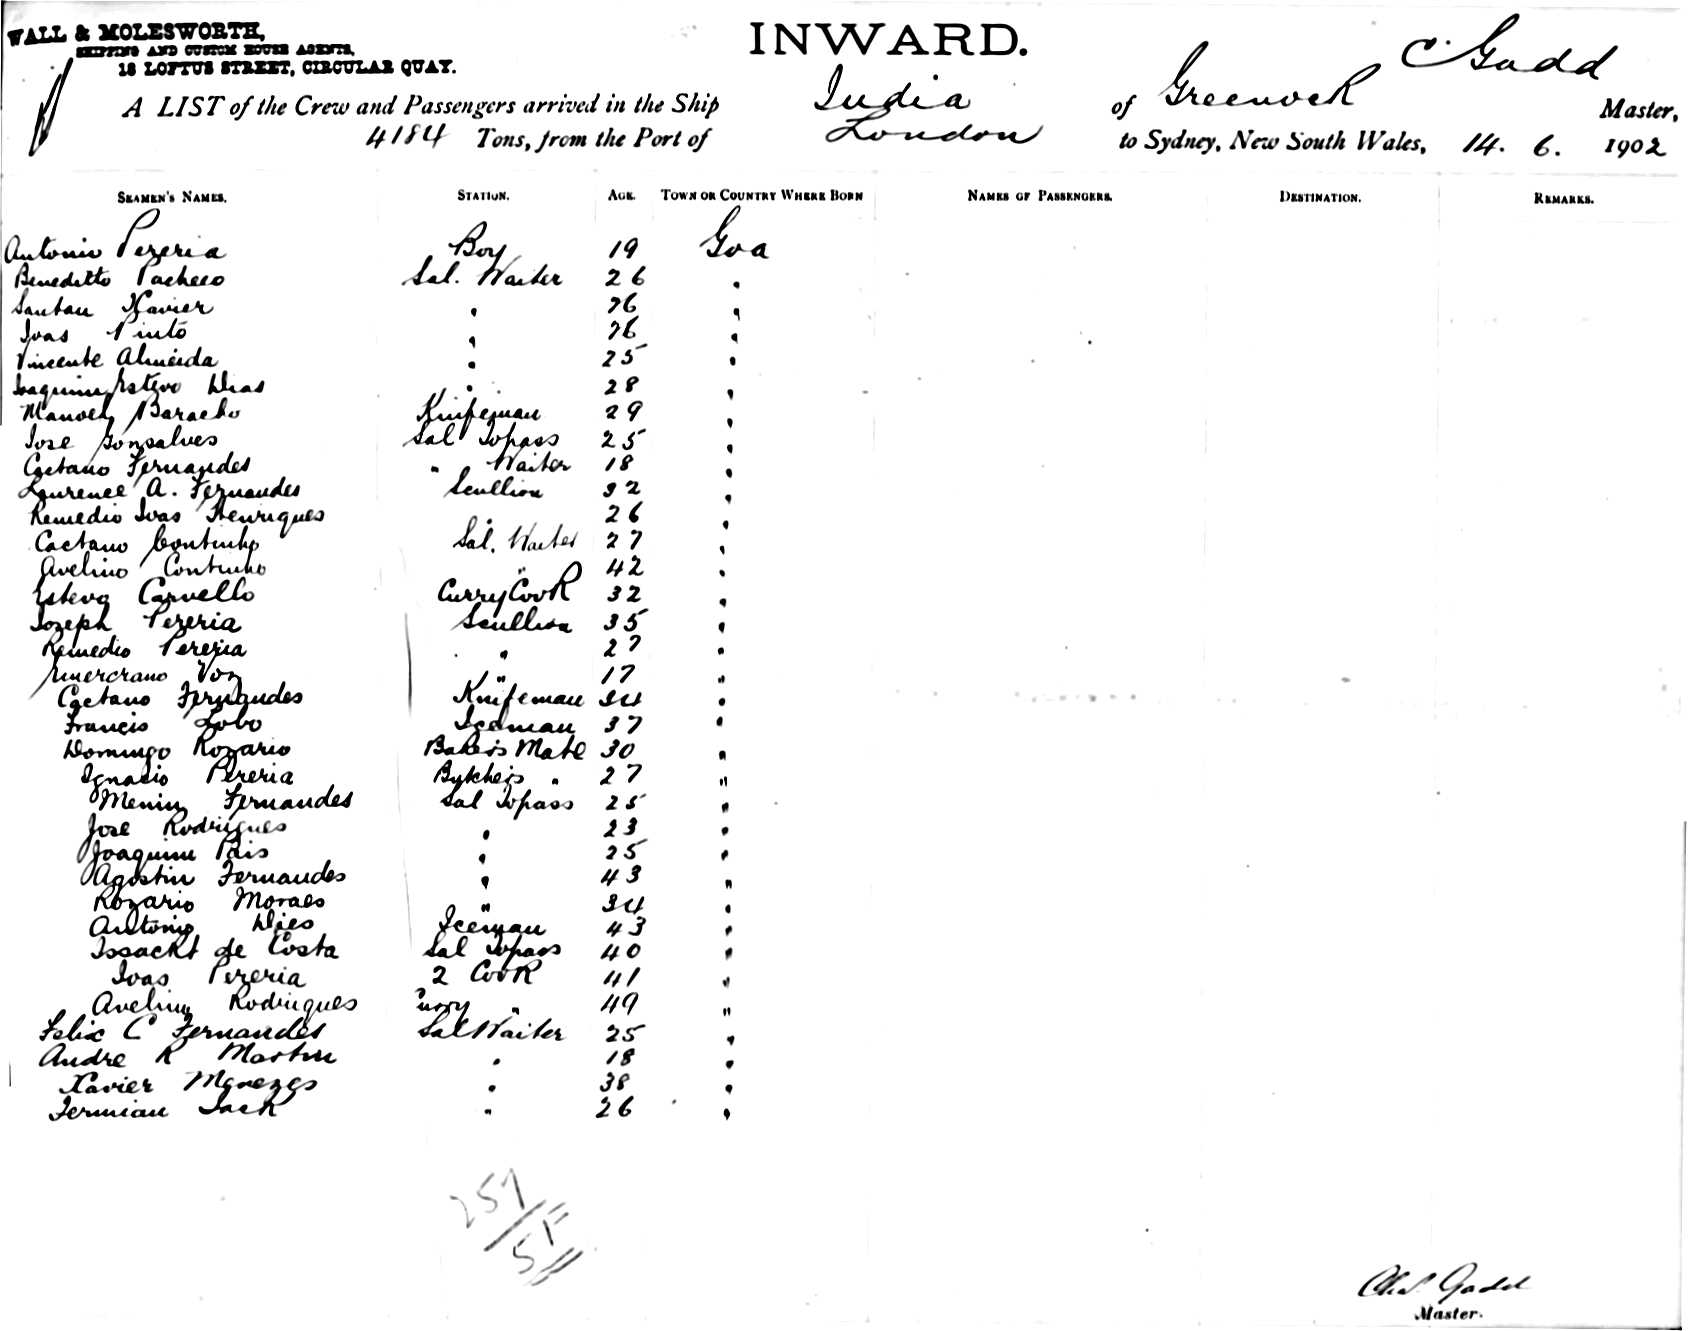 WALL & MOLESWORTH,
SHIPPING AND CUSTOM HOUSE AGENTS,
18 LOFTUS STREET, CIRCULAR QUAY.
INWARD.
A LIST of the Crew and Passengers arrived in the Ship India of Greenock C Gadd Master,
4184 Tons, from the Port of London to Sydney, New South Wales, 14. 6. 1902
SEAMEN'S NAMES. STATION. AGE. TOWN OR COUNTRY WHERE BORN NAMES OF PASSENGERS. DESTINATION. REMARKS.
Antonio Pereria Boy 19 Goa
Beneditto Pacheco Sal. Waiter 26 "
Santan Xavier " 26 "
Joas Pinto " 26 "
Vincente Almeida " 25 "
Joaquim Estevo Dias " 28 "
Manoel Baracho Knifeman 29 "
Jose Gonsalves Sal Topass 25 "
Caetano Fernandes " Waiter 18 "
Laurence A. Fernandes Scullion 32 "
Remedio Joas Henriques " 26 "
Caetano Continho Sal. Waiter 27 "
Avelino Continho " 42 "
Esteva Carvello Curry Cook 32 "
Jozeph Pereria Scullion 35 "
Remedio Pereria " 27 "
Voz " 17 "
Caetano Fernandes Knifeman 34 "
Francis Lobo Iceman 37 "
Domingo Rozario Bakers Mate 30 "
Ignasio Pereria Butchers " 27 "
Menin Fernandes Sal Topass 25 "
Jose Rodrigues " 23 "
Joaquim Pais " 25 "
Agostin Fernandes " 43 "
Rozario Moraes " 34 "
Antonio Dies Iceman 43 "
Issackt de Costa Sal Topass 40 "
Joas Pereria 2 Cook 41 "
Avelin Rodrigues Curry " 49 "
Felix C Fernandes Sal Waiter 25 "
Andre R Martin " 18 "
Xavier Menezes " 38 "
Fermian Jack " 26 "
257
Chas. Gadd
Master.